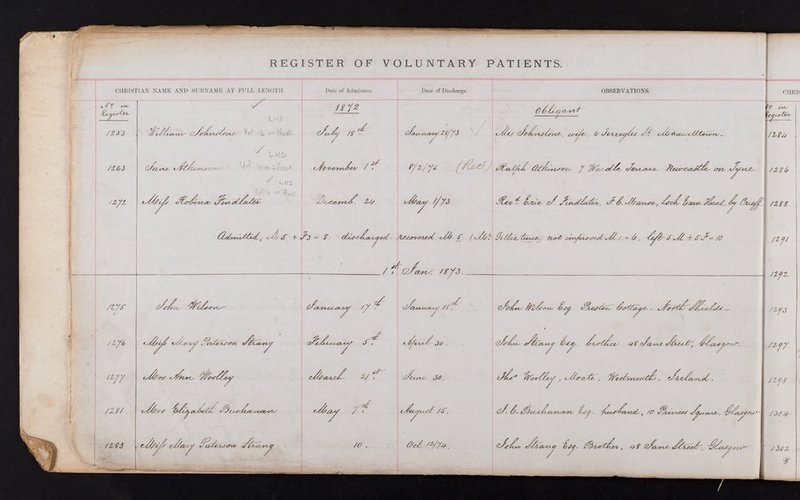 REGISTER OF VOLUNTARY PATIENTS.
CHRISTIAN NAME AND SURNAME AT FULL LENGTH. Date of Admission. Date of Discharge. OBSERVATIONS.
No in Register 1872 Obligant
LHS
1253 William Johnstone July 18th January 28/73 Mrs Johnstone, wife, 6 Terregles St. Maxwelltown.
LHS
1263 Jane Atkinson November 1st 8/2/76 (Rec) Ralph Atkinson 7 Wardle Terrace Newcastle on Tyne
LHS
1272 Miss Robina Findlater Decemb 24. May 1/73 Revd Eric J Findlater, F. C. Manse, Loch Earn Head, by Crieff
Admitted, M 5 + F3 = 8. discharged recovered M 5 (Mr Gillie twice) not improved M 1 = 6. left 5 M + 5 F = 10
1st Jan. 1873
1275 John Wilson January 17th January 18th John Wilson Esq Preston Cottage - North Shields -
1276 Miss Mary Paterson Strang February 5th April 30. John Strang Esq. brother 48 Jane Street, Glasgow.
1277 Mrs Ann Woolley March 21st June 30. Thos Woolley, Moate, Westmeath. Ireland.
1281 Mrs Elizabeth Buchanan May 7th August 15. J. C. Buchanan Esq. husband, 10 Princes Square. Glasgow
1283 Miss Mary Paterson Strang 10. Oct 12/74. John Strang Esq. Brother, 48 Jane Street, Glasgow
CHRIS
No in Register
1284
1286
1288
1291
1292
1293
1297
1298
1304
1302